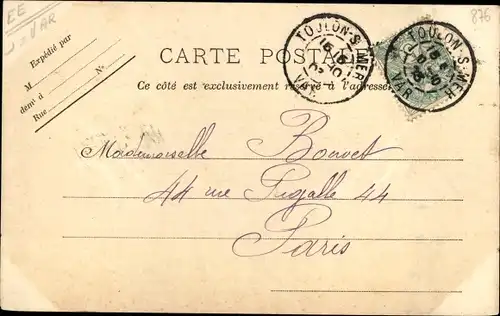 EE
VAR
876
Expédié par
M
demt à
No
Rue
CARTE POSTALE
Ce côté est exclusivement réservé à l'adresse
TOULON-S-MER
VAR
TOULON-S-MER
VAR
Mademoiselle Bonvet
44 rue Pigalle 44
Paris